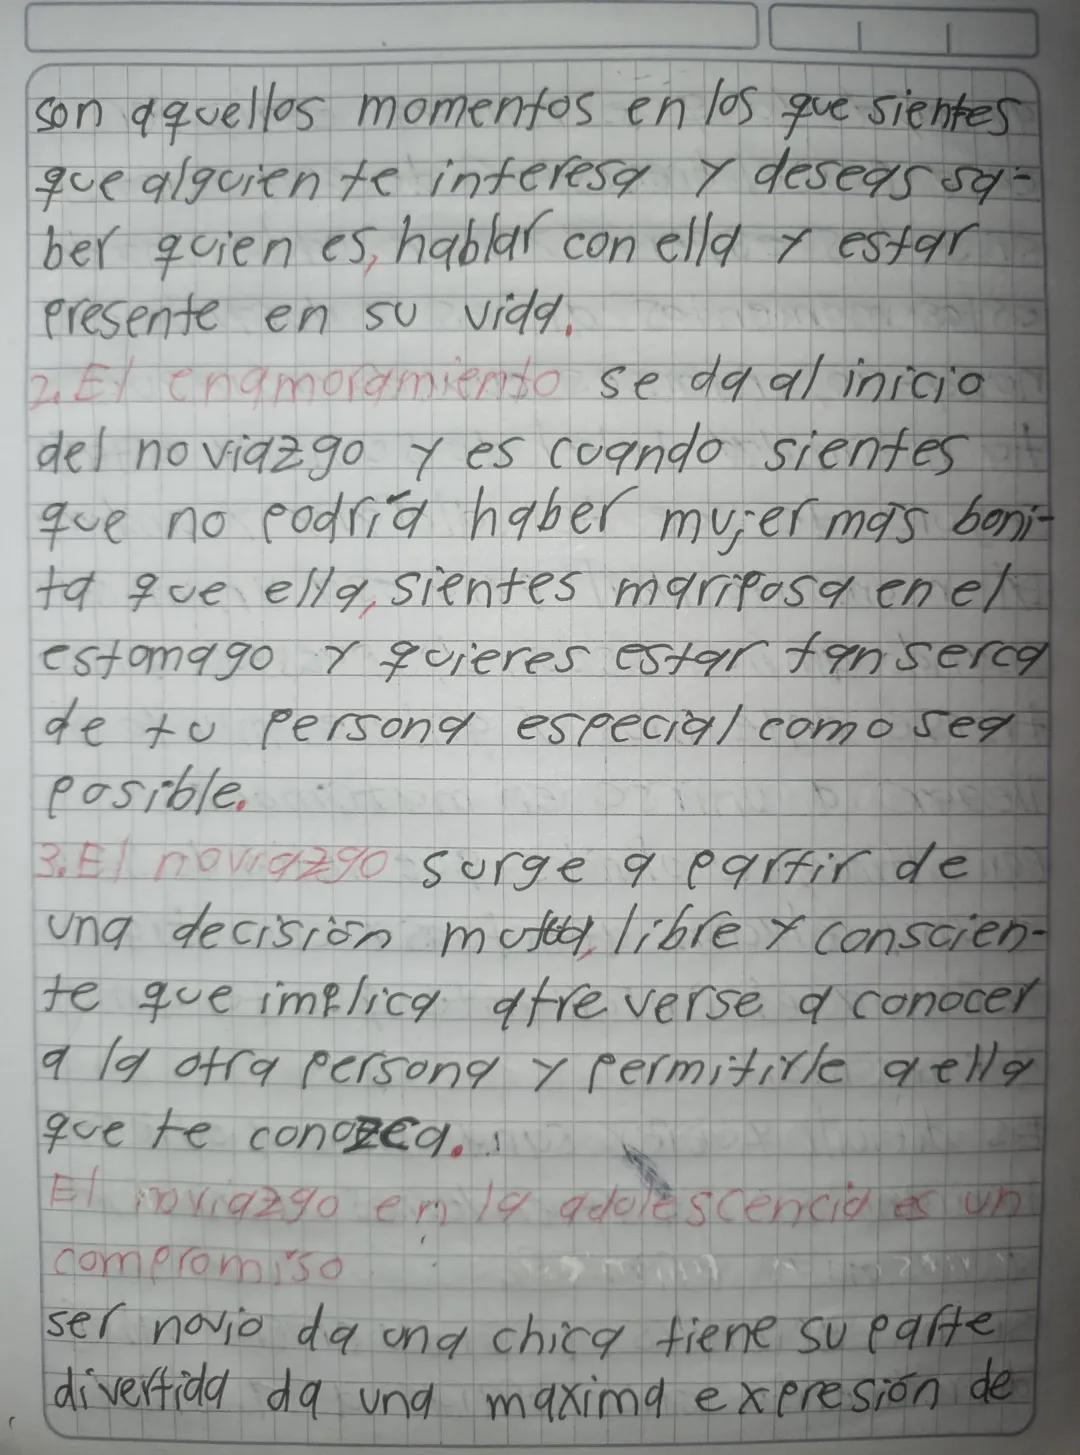 son aquellos momentos en los que sientes
que alguien te interesa y deseas sa-
ber quien es, hablar con ella y estar
presente en su vida.
2. El enamoramiento se da al inicio
del noviazgo y es cuando sientes
que no podría haber mujer mas boni-
ta que ella, sientes mariposa en el
estomago y quieres estar tan serca
de tu persona especial como sea
posible.
3. El noviazgo surge a partir de
una decisión libre y conscien-
te que implica atreverse a conocer
a la otra persona y permitirle a ella
que te conozca.
El noviazgo en la adolescencia es un
compromiso
ser novio da una chica tiene su parte
divertida da una maxima expresión de